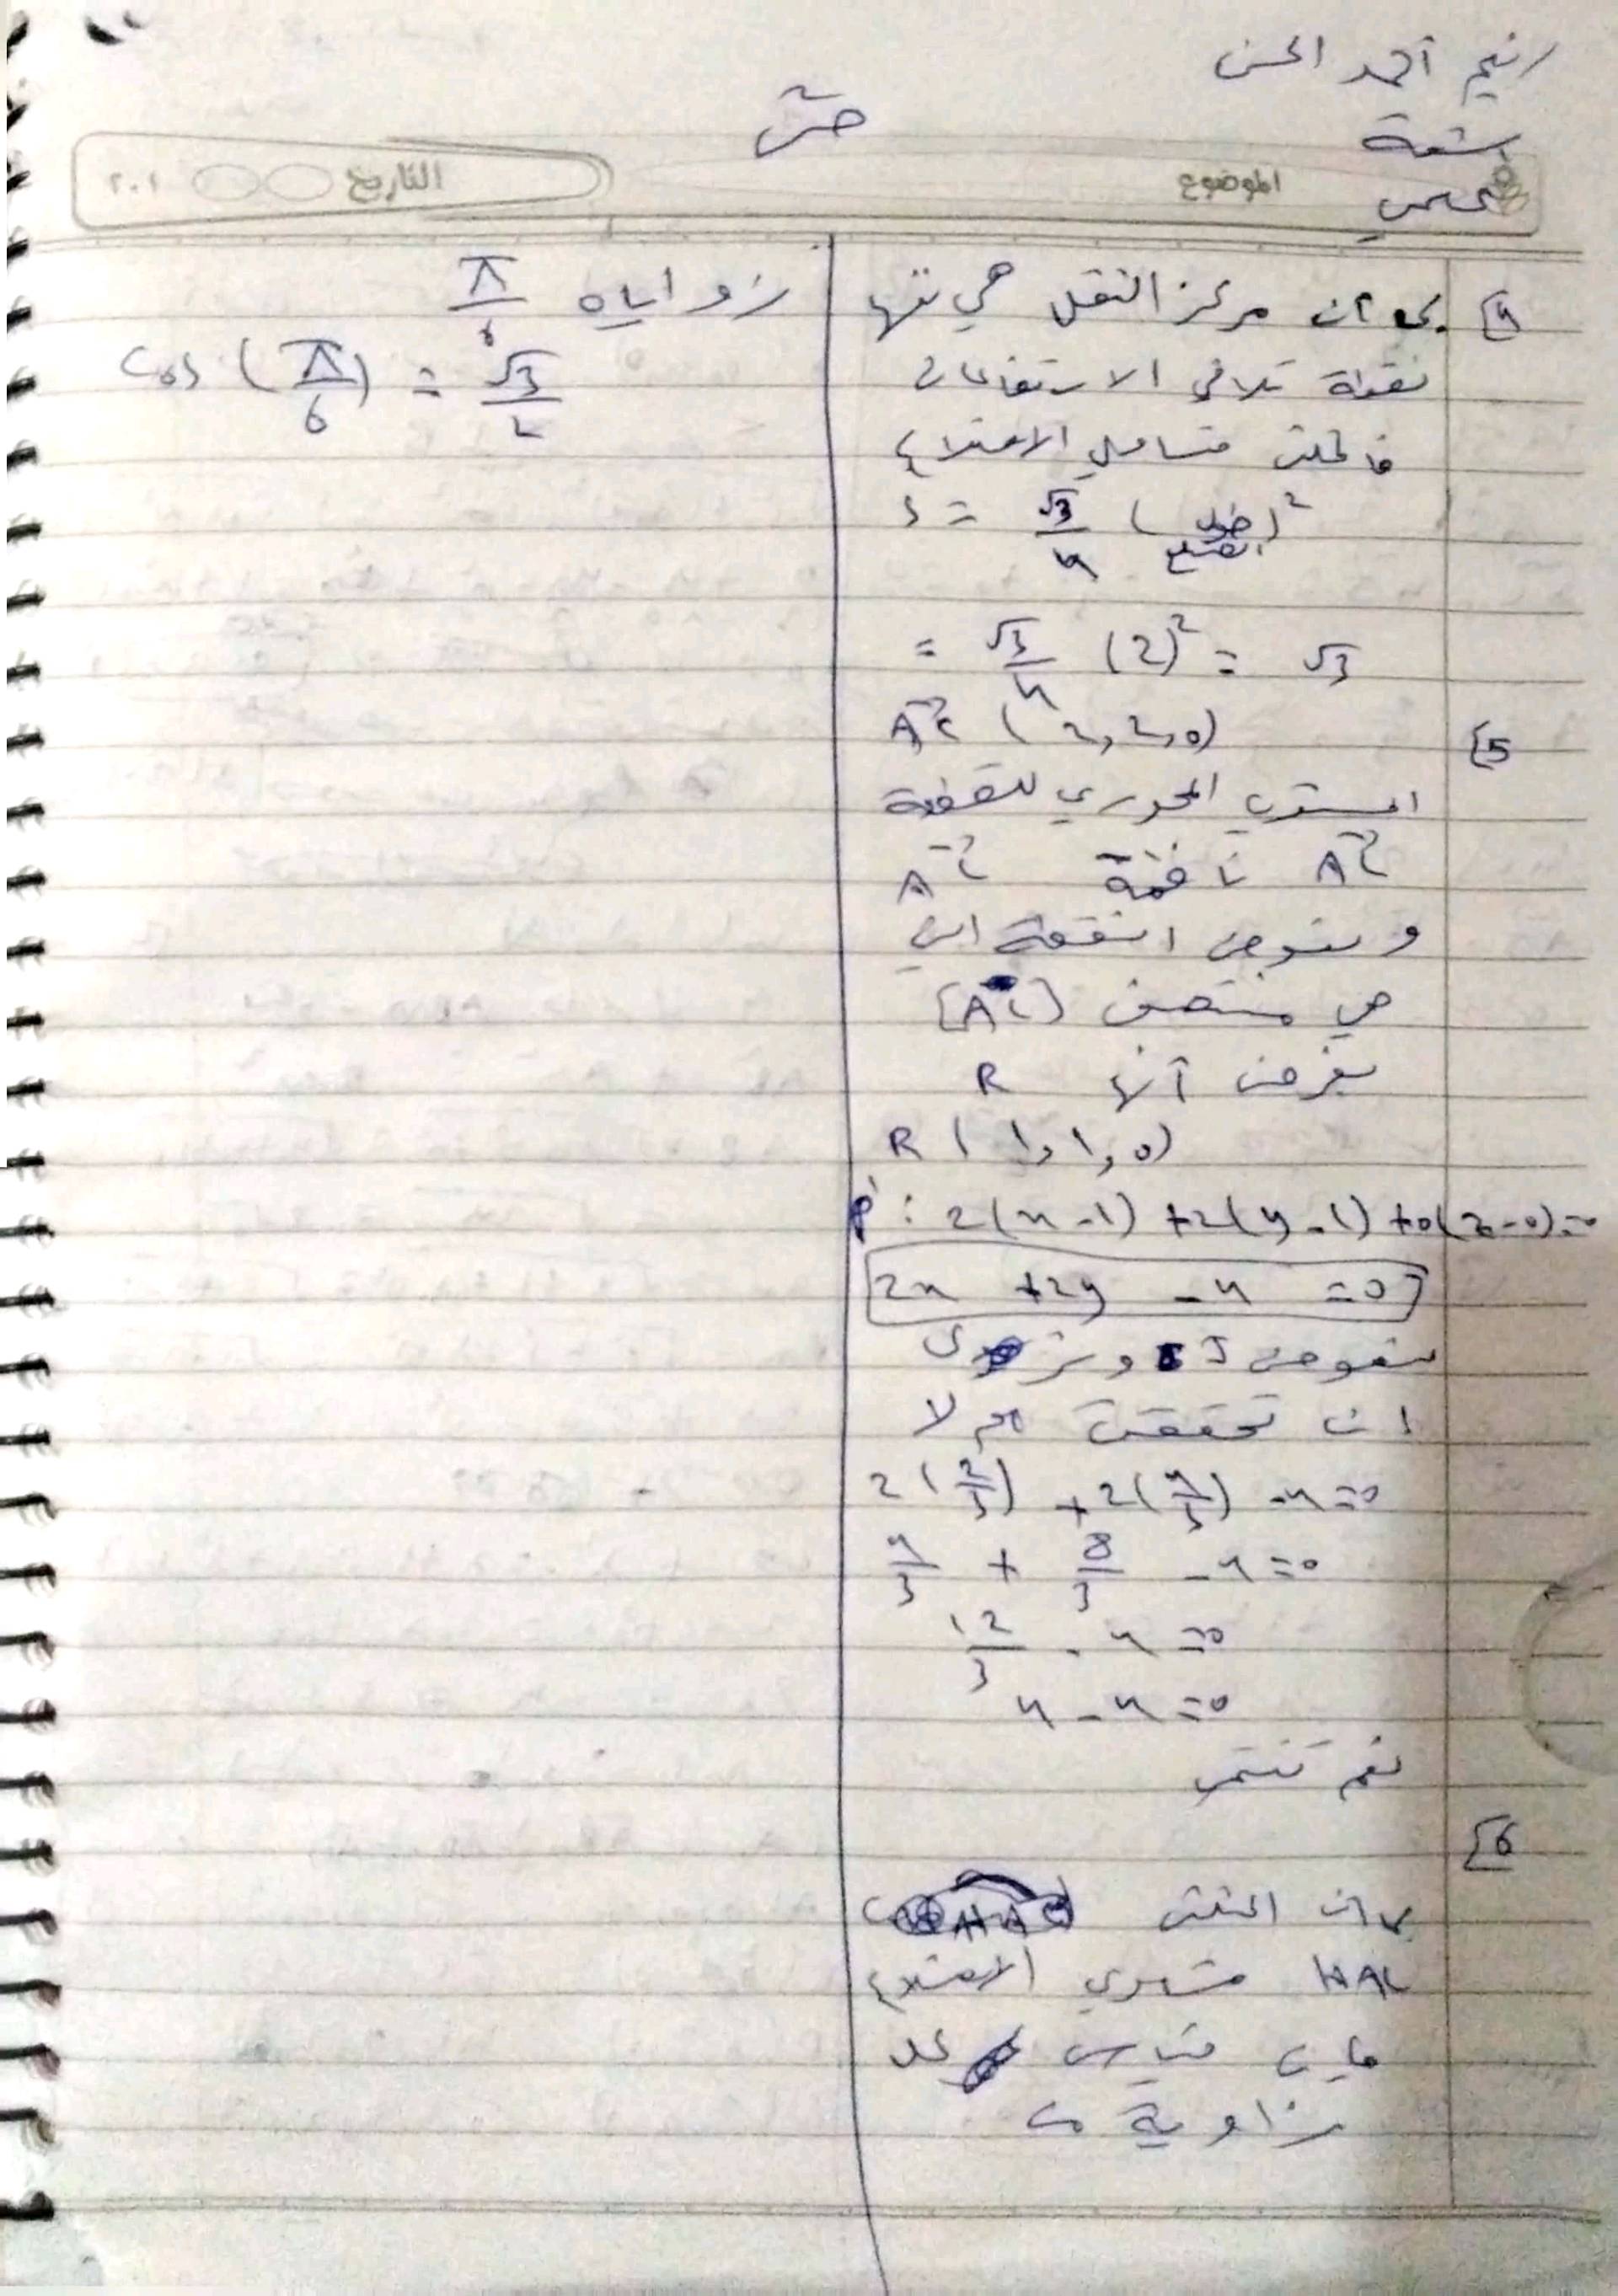 رنيم احمد الحسن
شعبة
الموضوع
التاريخ
٢٠١
4}
بما ان مركز الثقل هي نفسها
نقطة تلاقي الارتفاعات
فالمثلث متساوي الاضلاع
S = √3/4 (طول الضلع)²
= √3/4 (2)² = √3
5}
AC (2,2,0)
المستوي المحوري للقطعة
AC ناظمه AC
ونعوض النقطة التي
هي منتصف [AC]
بفرض أنها R
R (1,1,0)
P': 2(x-1) +2(y-1) +0(z-0)=0
2x +2y -4 =0
نعوض J ونرى
ان تحققت ام لا
2(2/3) +2(4/3) -4=0
4/3 + 8/3 -4=0
12/3 - 4=0
4-4=0
نعم تنتمي
6}
بما ان المثلث
HAC متساوي الاضلاع
فإن قياس كل
زاوية من
زواياه π/6
Cos (π/6) = √3/2